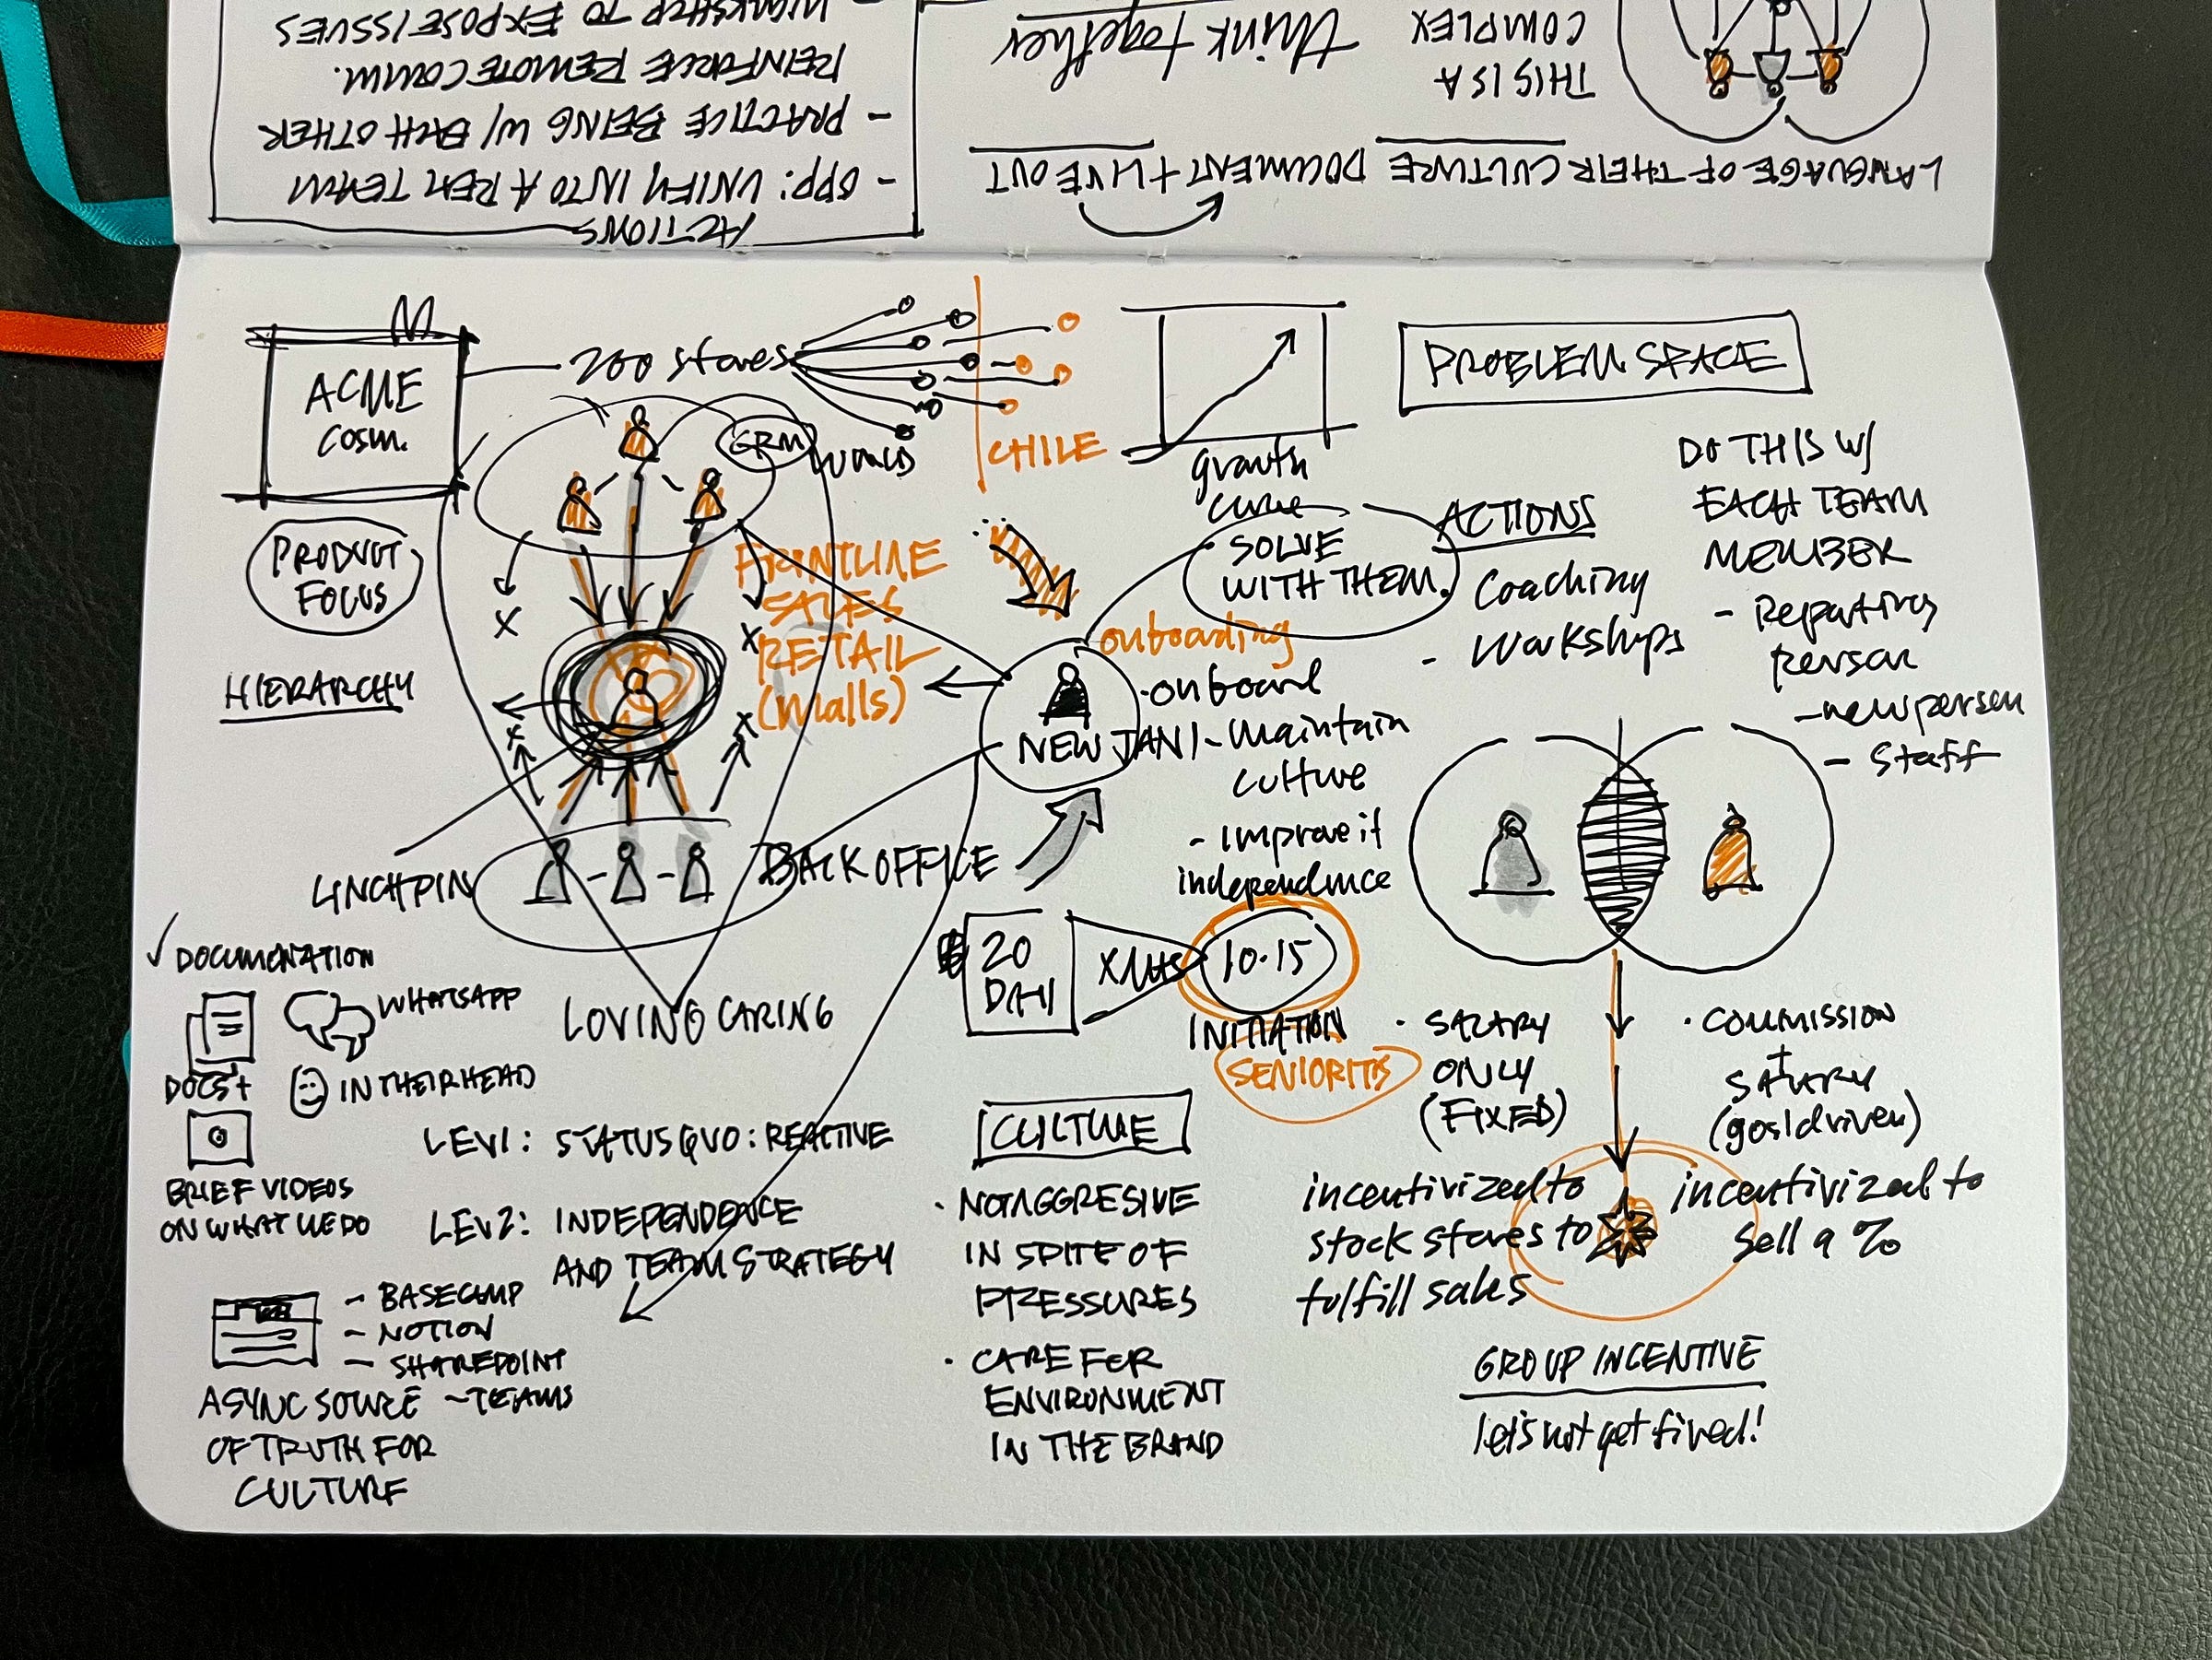 WORKSHOP TO EXPOSE ISSUES
REINFORCE REMOTE COMM.
- PRACTICE BEING W/ EACH OTHER
- OPP: UNIFY INTO A TEAM
ACTIONS
think together
THIS IS A
COMPLEX
LANGUAGE OF THEIR CULTURE DOCUMENT + LIVE OUT
ACME
COSM.
200 stores
GRM
CHILE
growth
curve
PROBLEM SPACE
PRODUCT
FOCUS
HIERARCHY
FRONTLINE
SALES
RETAIL
(malls)
SOLVE
WITH THEM.
ACTIONS
Coaching
- Workshops
DO THIS W/
EACH TEAM
MEMBER
- Reporting
person
- new person
- Staff
onboarding
NEW JAN 1
• onboard
- Maintain
culture
- Improve it
independence
LINCHPIN
BACK OFFICE
LOVING CARING
20
10.15
INITIATION
SENIORITY
✓ DOCUMENTATION
WHATSAPP
DOCS +
IN THEIR HEAD
BRIEF VIDEOS
ON WHAT WE DO
LEV1: STATUS QUO: REACTIVE
LEV2: INDEPENDENCE
AND TEAM STRATEGY
- BASECAMP
- NOTION
- SHAREPOINT
- TEAMS
ASYNC SOURCE
OF TRUTH FOR
CULTURE
CULTURE
• NOT AGGRESIVE
IN SPITE OF
PRESSURES
• CARE FOR
ENVIRONMENT
IN THE BRAND
• SALARY
ONLY
(FIXED)
• COMMISSION
+
SALARY
(goal driven)
incentivized to
stock stores to
fulfill sales
incentivized to
sell a %
GROUP INCENTIVE
let's not get fired!